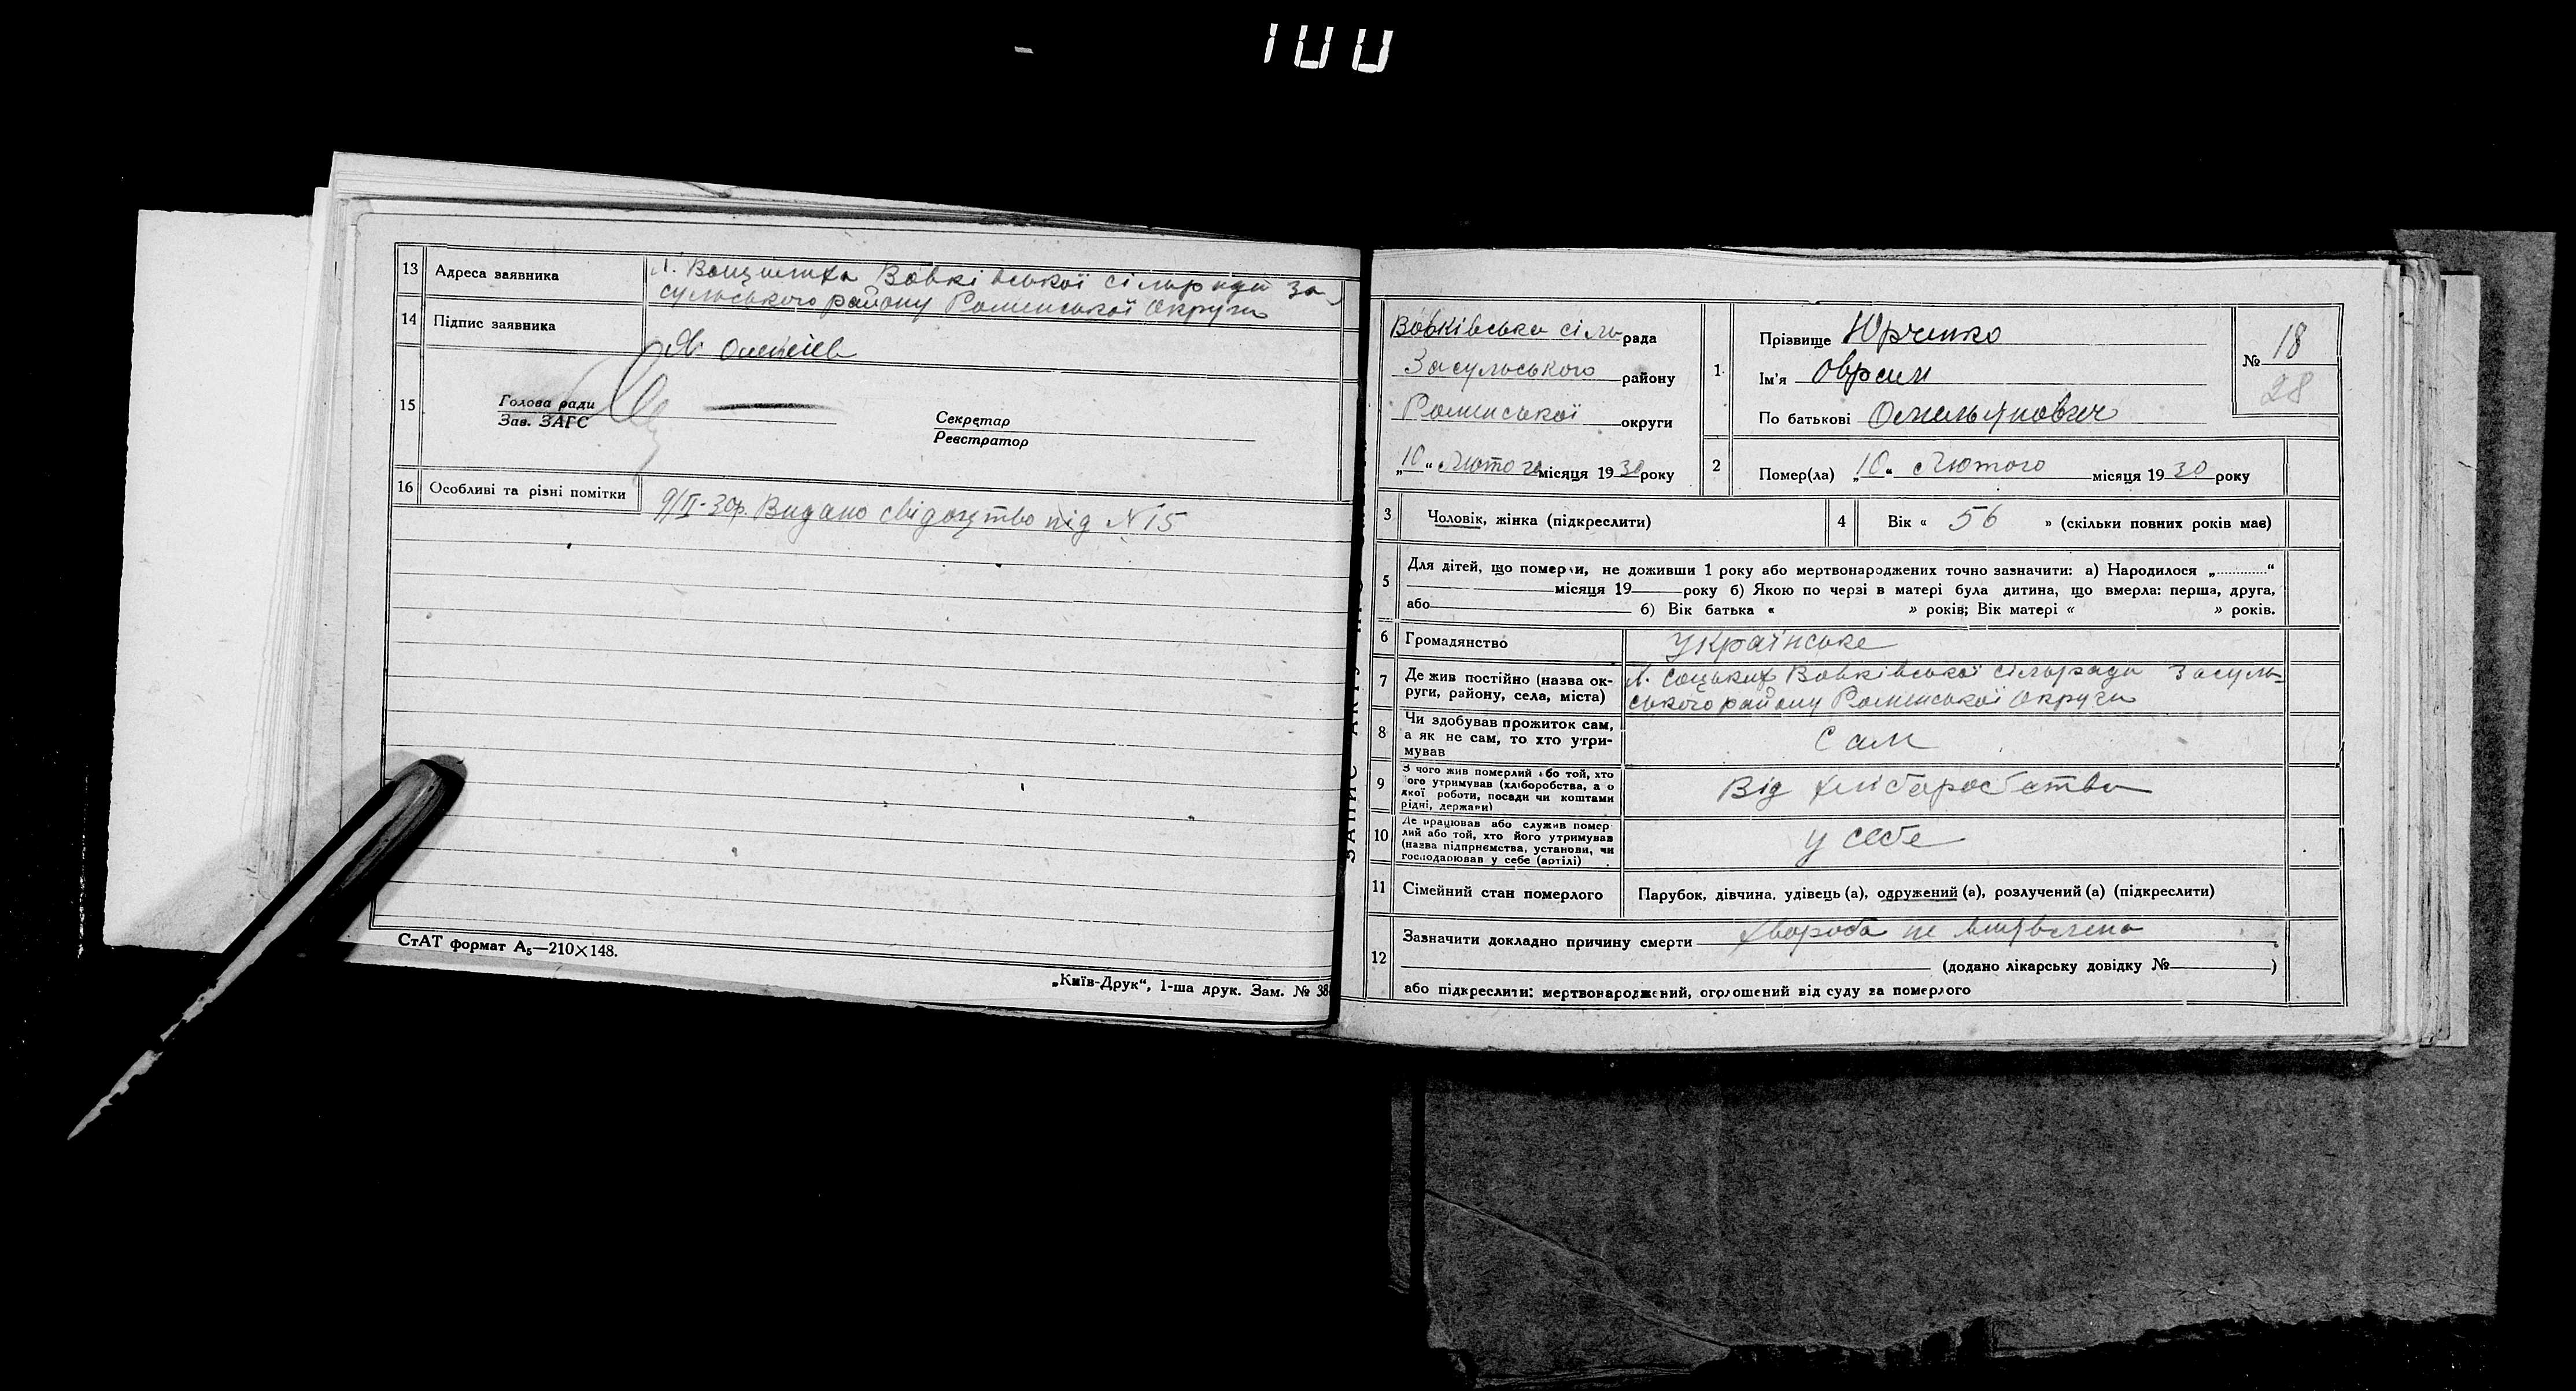 100
13 Адреса заявника
Вовківської сільради За-
сульського району Роменської округи
14 Підпис заявника
15 Голова ради
Зав. ЗАГС
Секретар
Реєстратор
16 Особливі та різні помітки
9/II-30р. Видано свідоцтво під № 15
СтАТ формат А5—210×148.
„Київ-Друк“, 1-ша друк. Зам. № 38
Вовківська сільрада
Засульського району
Роменської округи
„10“ Лютого місяця 1930 року
1. Прізвище Юрченко
Ім'я Оврам
По батькові Омелянович
№ 18
28
2 Помер(ла) „10“ Лютого місяця 1930 року
3 Чоловік, жінка (підкреслити)
4 Вік « 56 » (скільки повних років має)
5 Для дітей, що померли, не доживши 1 року або мертвонароджених точно зазначити: а) Народилося „ “
місяця 19 року б) Якою по черзі в матері була дитина, що вмерла: перша, друга,
або б) Вік батька « » років; Вік матері « » років.
6 Громадянство Українське
7 Де жив постійно (назва ок-
руги, району, села, міста)
Вовківської сільради Засуль-
ського району Роменської округи
8 Чи здобував прожиток сам,
а як не сам, то хто утри-
мував
Сам
9 З чого жив померлий або той, хто
його утримував (хліборобства, а о
якої роботи, посади чи коштами
рідні, держави)
Від хліборобства
10 Де працював або служив помер
лий або той, хто його утримував
(назва підприємства, установи, чи
господарював у себе (артілі)
у себе
11 Сімейний стан померлого Парубок, дівчина, удівець (а), одружений (а), розлучений (а) (підкреслити)
12 Зазначити докладно причину смерти хвороба не
(додано лікарську довідку № )
або підкреслити: мертвонароджений, оголошений від суду за померлого
ЗАПИС АКТУ ПРО